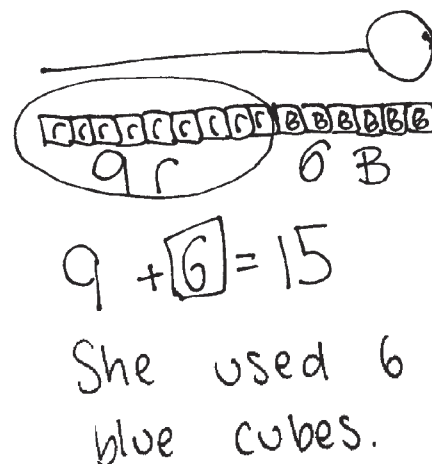 r r r r r r r r r B B B B B B
9 r 6 B
9 + 6 = 15
She used 6
blue cubes.